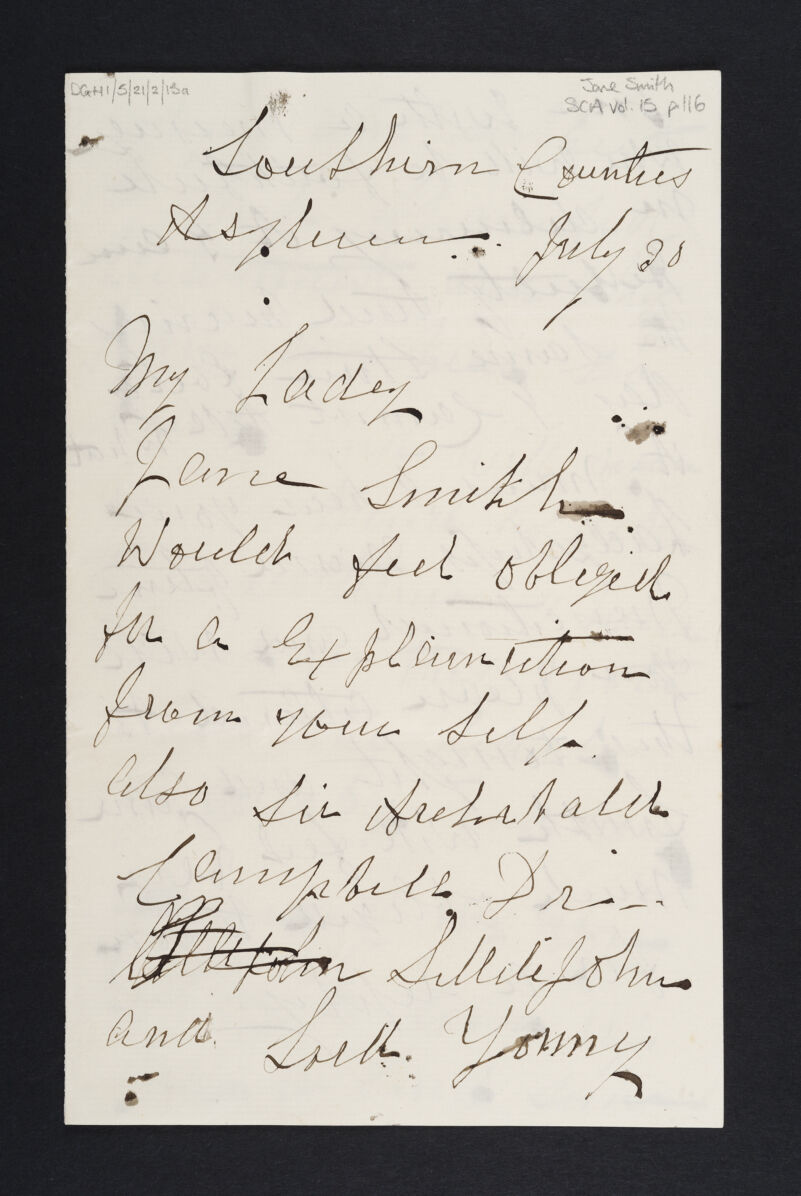 DGH1/5/21/2/13a
Jane Smith
SCA vol. 15 p116
Southirn Counties
Asyluem. July 20
My Ladey
Jane Smith
Would feel obliged
for a Explainition
from your Self
also Sir Archibald
Campbell Dr
LittleJohn
and Lord Young